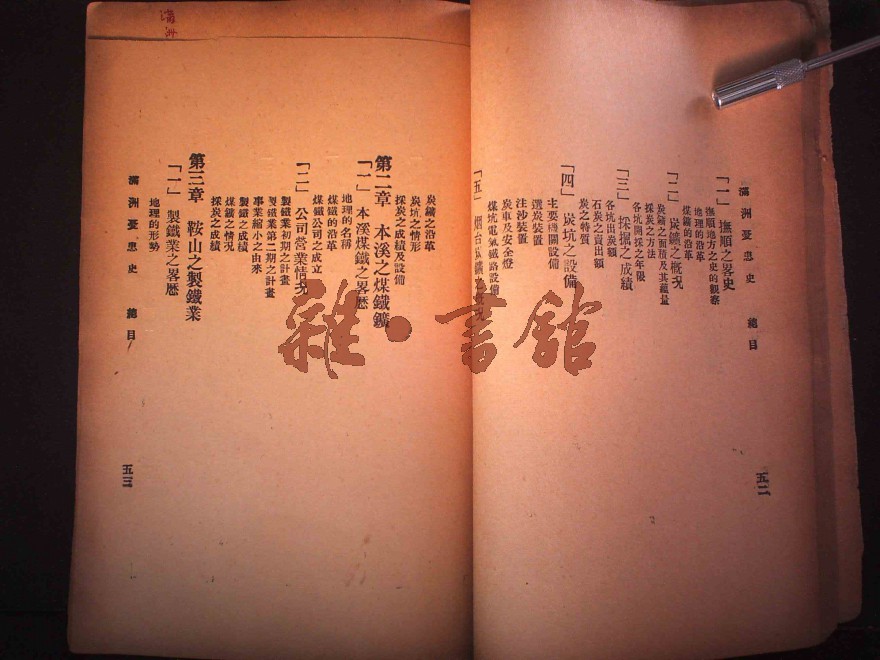 滿洲憂患史　總目
五二
「一」撫順之畧史
撫順地方之史的觀察
地理的沿革
煤鑛的沿革
「二」炭鑛之概況
炭鑛之面積及其蘊量
採炭之方法
各坑開採之年限
「三」採掘之成績
各坑出炭額
石炭之賣出額
炭之特質
「四」炭坑之設備
主要機關設備
選炭裝置
注沙裝置
炭車及安全燈
煤坑電氣鐵路設備
「五」烟台
炭鑛之沿革
炭坑之情形
採炭之成績及設備
第二章　本溪之煤鐵鑛
「一」本溪煤鐵之畧歷
地理的名稱
煤鐵的沿革
煤鐵公司之成立
「二」公司營業情況
製鐵業初期之計畫
製鐵業第二期之計畫
事業縮小之由來
製鐵之成績
煤鑛之情況
採炭之成績
第三章　鞍山之製鐵業
「一」製鐵業之畧歷
地理的形勢
滿洲憂患史　總目
五三
雜·書館